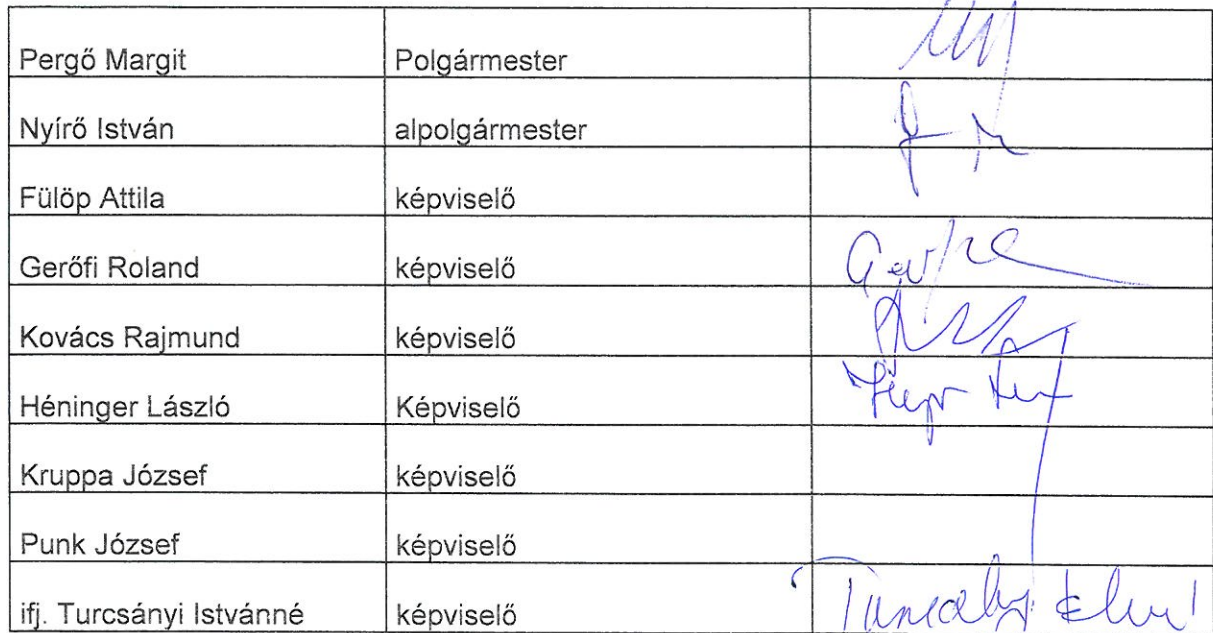 Pergő Margit Polgármester
Nyírő István alpolgármester
Fülöp Attila képviselő
Gerőfi Roland képviselő
Kovács Rajmund képviselő
Héninger László Képviselő
Kruppa József képviselő
Punk József képviselő
ifj. Turcsányi Istvánné képviselő